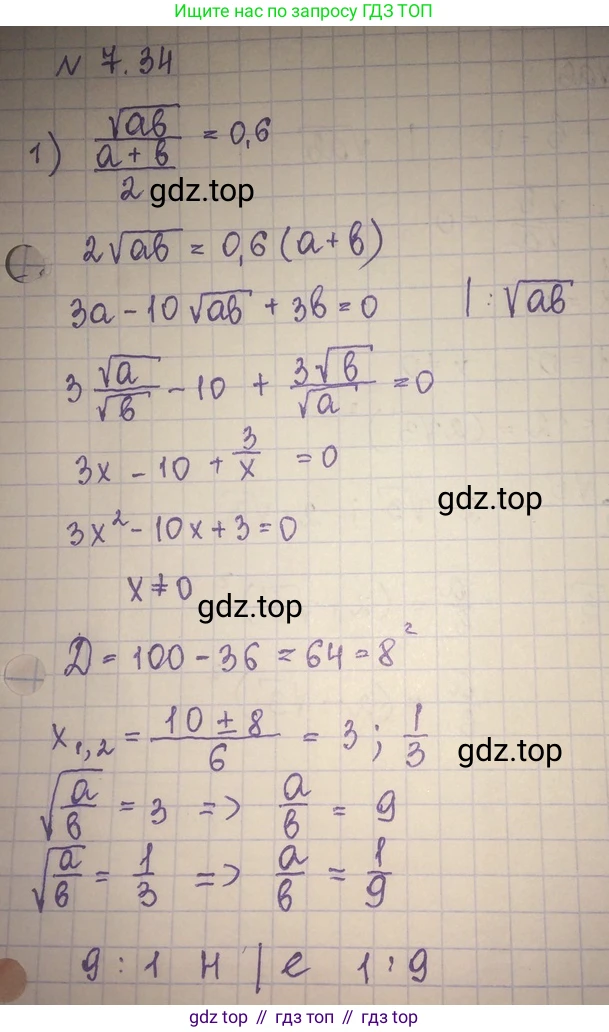 Ищите нас по запросу ГДЗ ТОП
N 7.34
1) √ab / ((a + b) / 2) = 0,6
gdz.top
2√ab = 0,6 (a+b)
3a - 10 √ab + 3b = 0 | : √ab
3 √a/√b - 10 + 3√b/√a = 0
3x - 10 + 3/x = 0
gdz.top
3x² - 10x + 3 = 0
x ≠ 0
gdz.top
D = 100 - 36 = 64 = 8²
x₁,₂ = (10 ± 8)/6 = 3 ; 1/3
gdz.top
√(a/b) = 3 => a/b = 9
√(a/b) = 1/3 => a/b = 1/9
9 : 1 н/е 1 : 9
gdz top // гдз топ // gdz.top